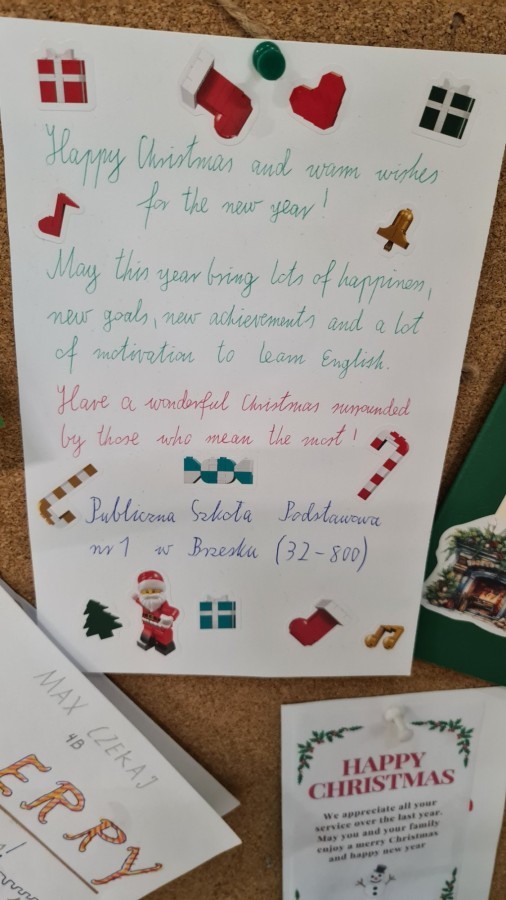 Happy Christmas and warm wishes
for the new year!
May this year bring lots of happiness,
new goals, new achievements and a lot
of motivation to learn English.
Have a wonderful Christmas surrounded
by those who mean the most!
Publiczna Szkoła Podstawowa
nr 1 w Brzesku (32-800)
MAX CZEKAJ
4B
ERRY
HAPPY
CHRISTMAS
We appreciate all your
service over the last year.
May you and your family
enjoy a merry Christmas
and happy new year